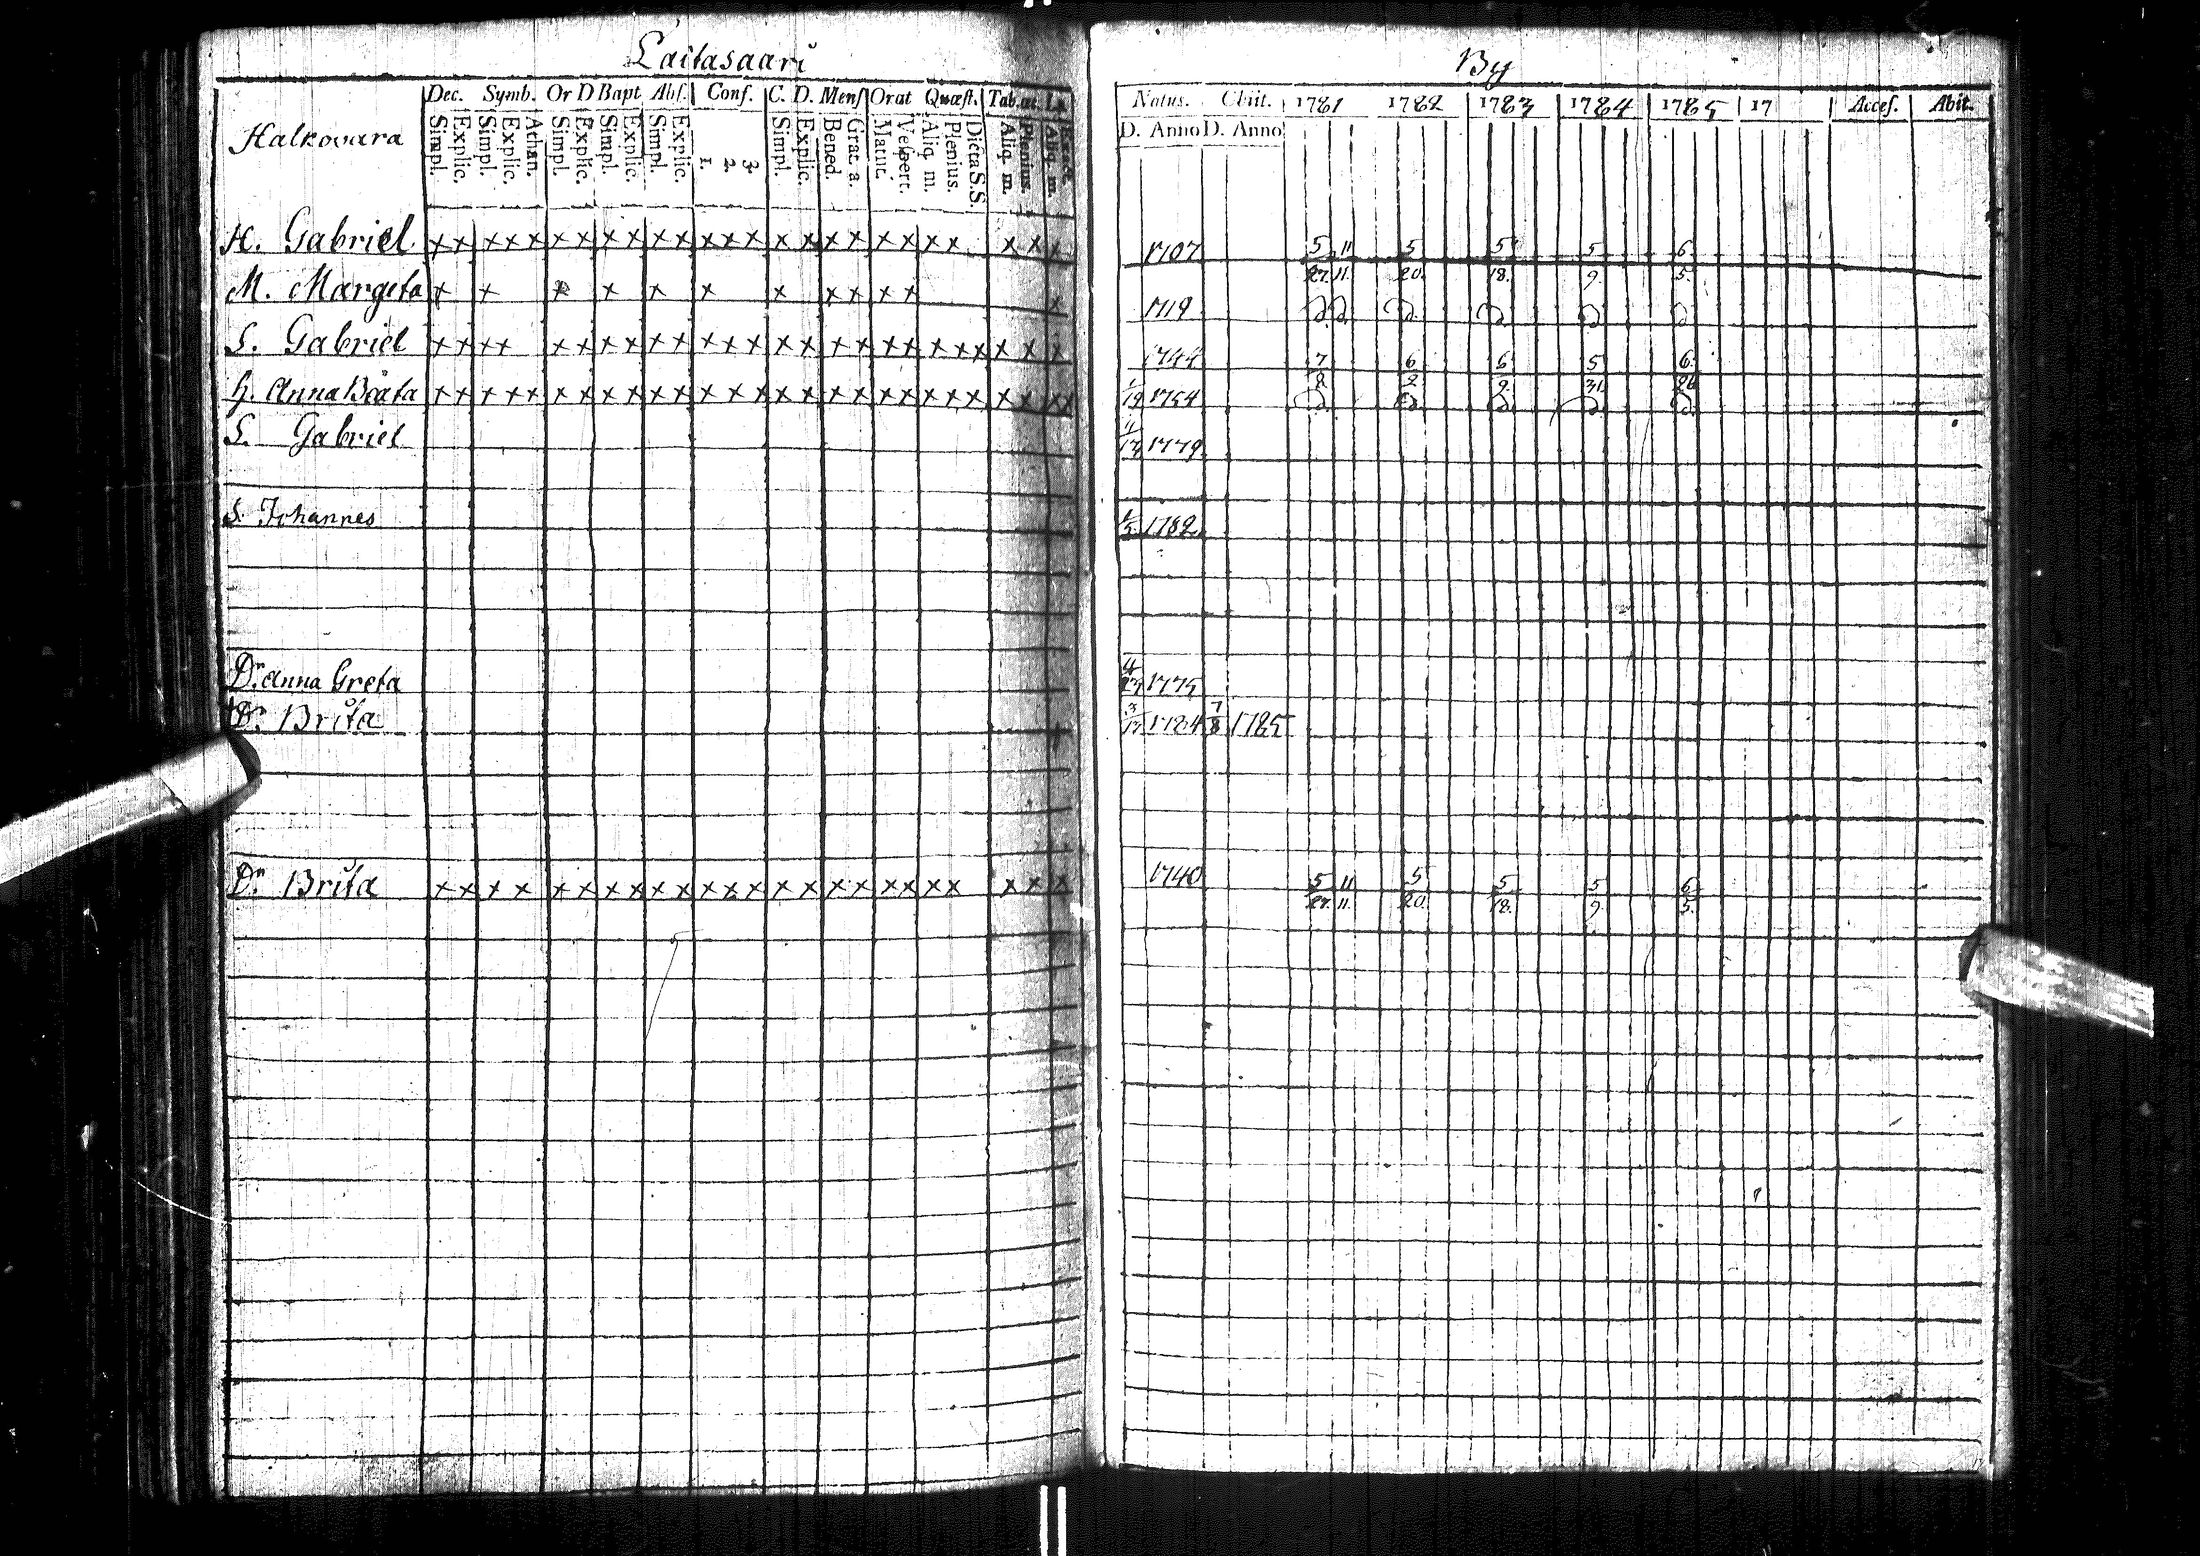 Laitasaari By
Dec. Symb. Or D Bapt Abs. Conf. C. D. Mens Orat Quæst. Tab.
Natus. Obiit. 1781 1782 1783 1784 1785 17 Acces. Abit.
Halkovara
Simpl. Explic. Simpl. Explic. Athan. Simpl. Explic. Simpl. Explic. Simpl. Explic. 1. 2. 3. Simpl. Explic. Bened. Grat. a. Matut. Vespert. Aliq. m. Plenius. Dicta S.S. Aliq. m. Plenius.
D. Anno D. Anno
H. Gabriel x x x x x x x x x x x x x x x x x x x x x x x x x 1707 5/27. 11/11. 5/20. 5/18. 5/9. 6/5.
M. Margeta x x x x x x x x x x x x 1719
S. Gabriel x x x x x x x x x x x x x x x x x x x x x x x x x 1744 7/8 6/2 6/9. 5/31 6/26
H. Anna Beata x x x x x x x x x x x x x x x x x x x x x x x x x x x 1/19 1754
S. Gabriel 1779
S. Johannes 1/5. 1782
Dr. Anna Greta 4/27 1775
Dr. Brita 3/17 1784 7/8 1785
Dr. Brita x x x x x x x x x x x x x x x x x x x x x x x x 1740 5/27. 11/11. 5/20. 5/18. 5/9. 6/5.